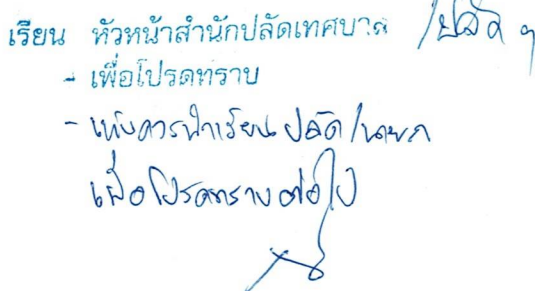 เรียน หัวหน้าสำนักปลัดเทศบาล /ปลัด ฯ
- เพื่อโปรดทราบ
- เห็นควรนำเรียน ปลัด /นายก
เพื่อโปรดทราบต่อไป